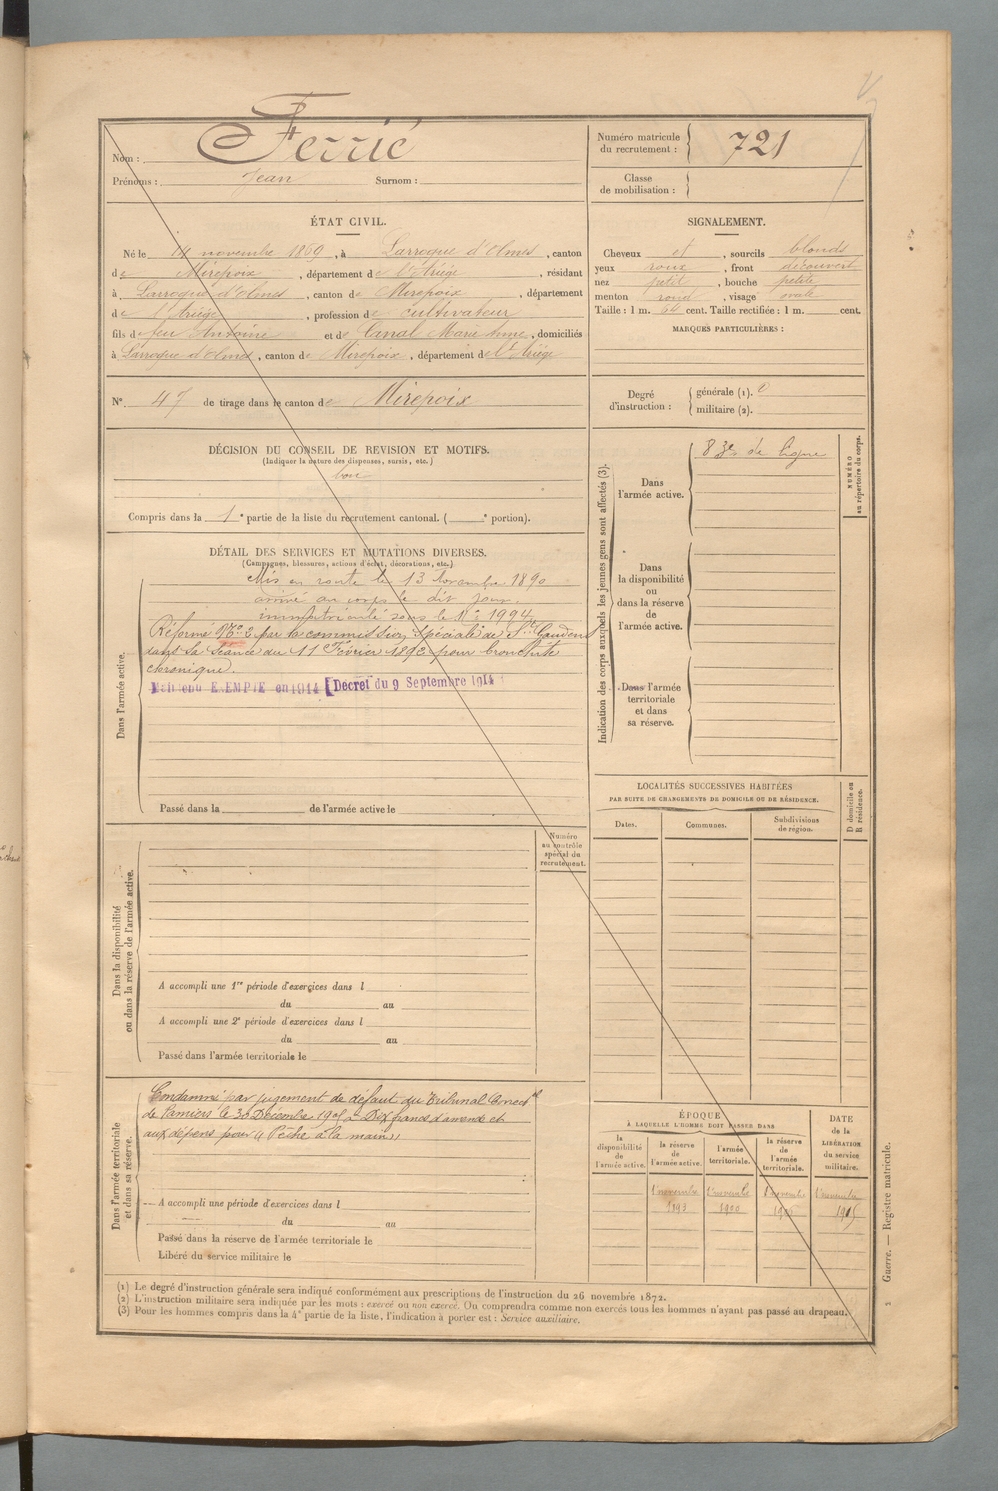 Nom : Ferrié
Prénoms : Jean Surnom :
Numéro matricule du recrutement : 721
Classe de mobilisation :
ÉTAT CIVIL.
Né le 14 novembre 1869, à Larroque d'Olmes, canton
de Mirepoix, département de l'Ariège, résidant
à Larroque d'Olmes, canton de Mirepoix, département
de l'Ariège, profession de cultivateur
fils de feu Antoine et de Canal Marie Anne, domiciliés
à Larroque d'Olmes, canton de Mirepoix, département de l'Ariège
N° 47 de tirage dans le canton de Mirepoix
SIGNALEMENT.
Cheveux et, sourcils blonds
yeux roux, front découvert
nez petit, bouche petite
menton rond, visage ovale
Taille : 1 m. 64 cent. Taille rectifiée : 1 m. cent.
MARQUES PARTICULIÈRES :
Degré d'instruction : générale (1).
militaire (2).
DÉCISION DU CONSEIL DE REVISION ET MOTIFS.
(Indiquer la nature des dispenses, sursis, etc.)
bon
Compris dans la 1e partie de la liste du recrutement cantonal. ( e portion).
DÉTAIL DES SERVICES ET MUTATIONS DIVERSES.
(Campagnes, blessures, actions d'éclat, décorations, etc.)
Dans l'armée active.
Mis en route le 13 novembre 1890
arrivé au corps le dit jour.
immatriculé sous le N° 1994
Réformé N° 2 par la commission spéciale de St Gaudens
dans sa séance du 11 Février 1892 pour bronchite
chronique.
Maintenu EXEMPTÉ en 1914 Décret du 9 Septembre 1914
Passé dans la de l'armée active le
Indication des corps auxquels les jeunes gens sont affectés (3).
Dans l'armée active.
83e de ligne
NUMÉRO au répertoire du corps.
Dans la disponibilité ou dans la réserve de l'armée active.
Dans l'armée territoriale et dans sa réserve.
LOCALITÉS SUCCESSIVES HABITÉES
PAR SUITE DE CHANGEMENTS DE DOMICILE OU DE RÉSIDENCE.
Dates. Communes. Subdivisions de région. D domicile ou R résidence.
Numéro au contrôle spécial du recrutement.
Dans la disponibilité ou dans la réserve de l'armée active.
A accompli une 1re période d'exercices dans l
du au
A accompli une 2e période d'exercices dans l
du au
Passé dans l'armée territoriale le
Dans l'armée territoriale et dans sa réserve.
Condamné par jugement de défaut du Tribunal Correctel
de Pamiers le 30 Décembre 1905 à Dix francs d'amende et
aux dépens pour « Pêche à la main »
A accompli une période d'exercices dans l
du au
Passé dans la réserve de l'armée territoriale le
Libéré du service militaire le
ÉPOQUE
À LAQUELLE L'HOMME DOIT PASSER DANS
la disponibilité de l'armée active.
la réserve de l'armée active.
l'armée territoriale.
la réserve de l'armée territoriale.
DATE de la LIBÉRATION du service militaire.
1er novembre 1893
1er novembre 1900
1er novembre
1er novembre 1915
Guerre. — Registre matricule.
(1) Le degré d'instruction générale sera indiqué conformément aux prescriptions de l'instruction du 26 novembre 1872.
(2) L'instruction militaire sera indiquée par les mots : exercé ou non exercé. On comprendra comme non exercés tous les hommes n'ayant pas passé au drapeau.
(3) Pour les hommes compris dans la 4e partie de la liste, l'indication à porter est : Service auxiliaire.